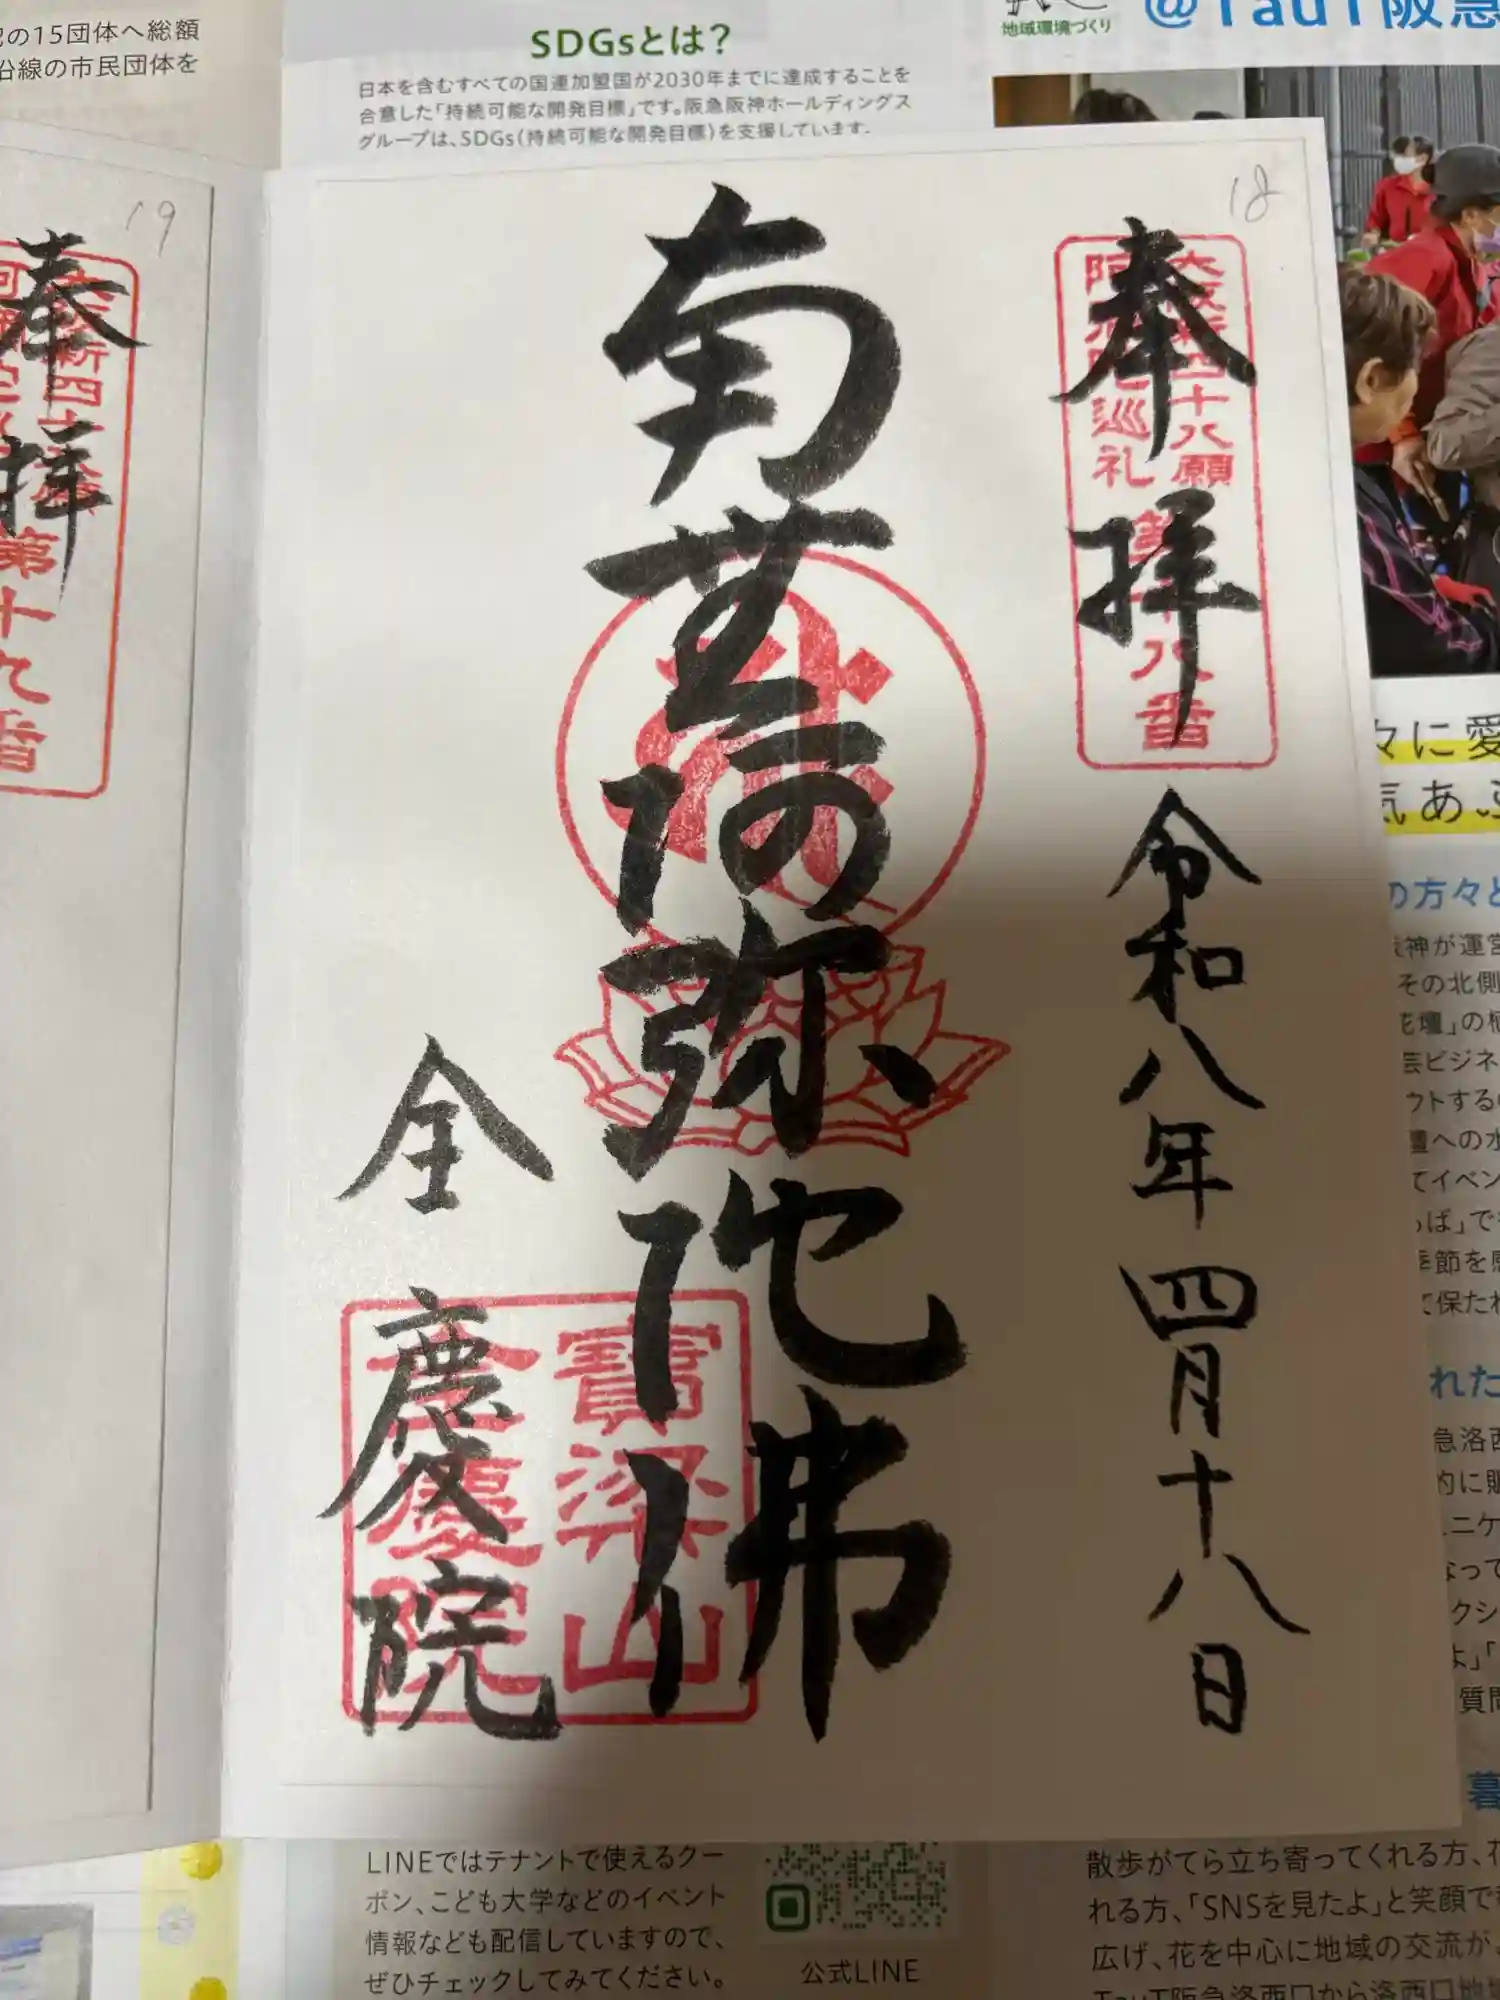 の15団体へ総額
沿線の市民団体を
SDGsとは？
日本を含むすべての国連加盟国が2030年までに達成することを
合意した「持続可能な開発目標」です。阪急阪神ホールディングス
グループは、SDGs（持続可能な開発目標）を支援しています。
地域環境づくり
@TauT阪急
18
奉拝
大阪新四十八願
阿弥陀巡礼
第十八番
令和八年四月十八日
南無阿弥陀佛
寳梁山
全慶院
全慶院
19
奉拝
第十九番
々に愛
気あふ
の方々と
神が運営
その北側
花壇」の植
芸ビジネ
ウトする
壇への水
てイベン
季節を
て保たれ
れた
急洛西
的に
なって
クシ
質問
暮
LINEではテナントで使えるクー
ポン、こども大学などのイベント
情報なども配信していますので、
ぜひチェックしてみてください。
公式LINE
散歩がてら立ち寄ってくれる方、花
れる方、「SNSを見たよ」と笑顔で
広げ、花を中心に地域の交流が
TauT阪急洛西口から洛西口地